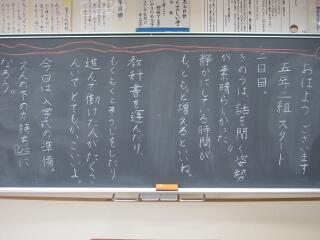 おはようございます
五年一組スタート
二日目。
きのうは、話を聞く姿勢
が素晴らしかった!!
静かにしてる時間が
もっともっと増えるといいね。
教科書を運んだり、
もくもくとそうじをしたり
進んで働けた人がたくさ
んいてとてもかっこいいよ。
今日は入学式の準備。
えんの下の力持ちに
なろう。